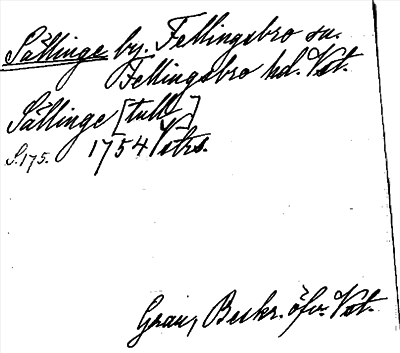 Sällinge by. Fellingsbro sn.
Fellingsbro hd. Vst.
Sällinge [tull]
S.175. 1754 Vstrs.
Grau, Beskr. öfv. Vst.